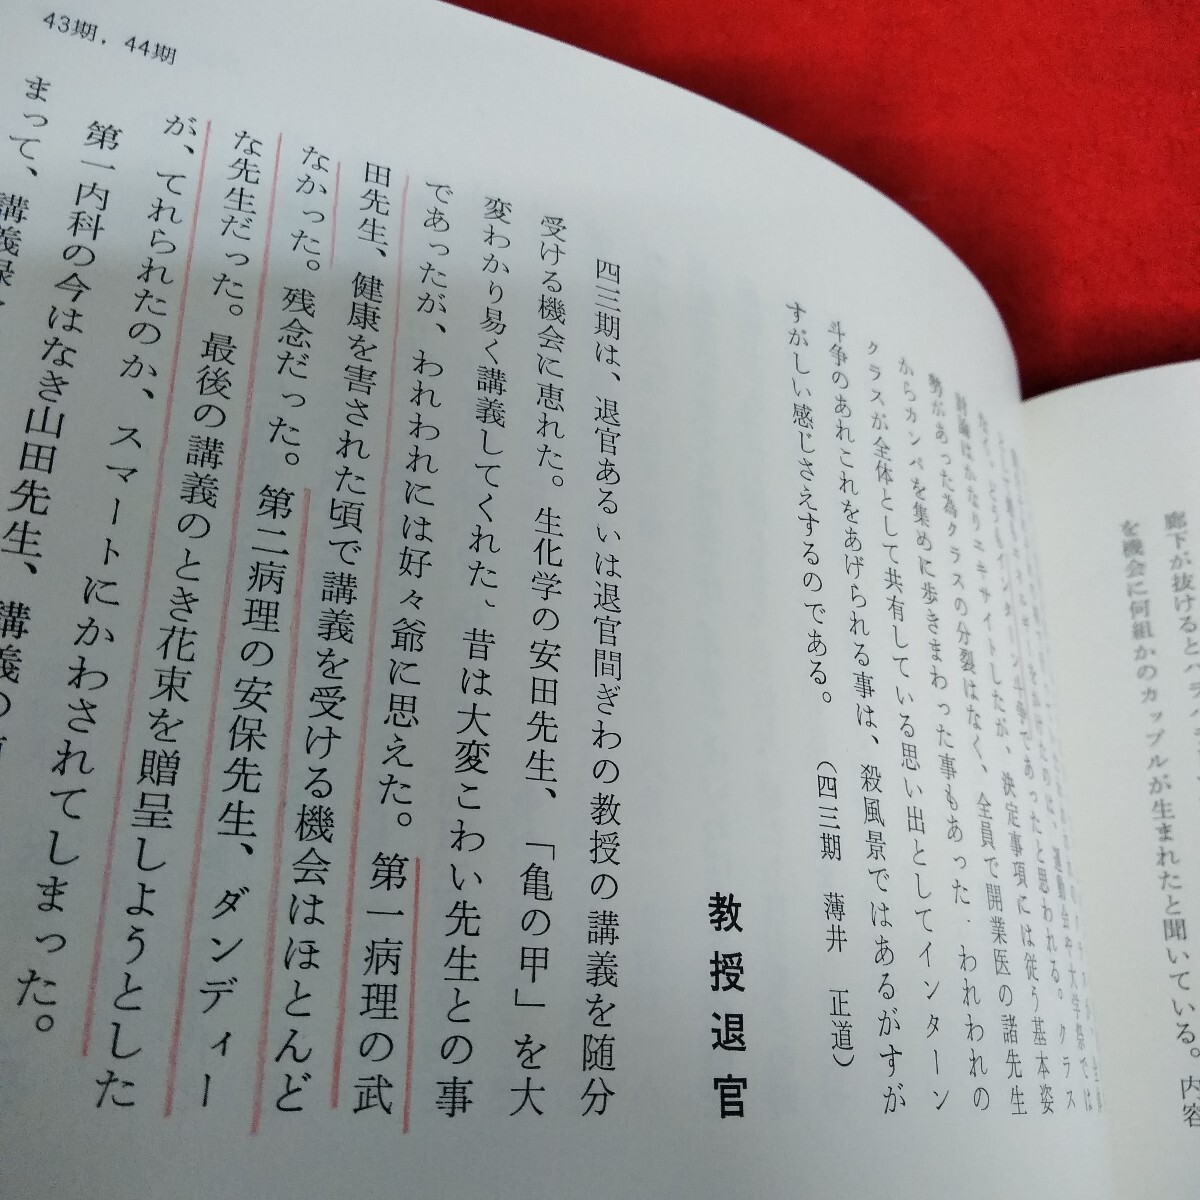 43期，44期
廊下が抜けると
を機会に何組かのカップルが生まれたと聞いている。内容
討論はかなりエキサイトしたが、決定事項には従う基本姿
勢があった為クラスの分裂はなく、全員で開業医の諸先生
からカンパを集めに歩きまわった事もあった．われわれの
クラスが全体として共有している思い出としてインターン
斗争のあれこれをあげられる事は、殺風景ではあるがすが
すがしい感じさえするのである。　（四三期　薄井　正道）
教授退官
四三期は、退官あるいは退官間ぎわの教授の講義を随分
受ける機会に恵れた。生化学の安田先生、「亀の甲」を大
変わかり易く講義してくれた、昔は大変こわい先生との事
であったが、われわれには好々爺に思えた。第一病理の武
田先生、健康を害された頃で講義を受ける機会はほとんど
なかった。残念だった。第二病理の安保先生、ダンディー
な先生だった。最後の講義のとき花束を贈呈しようとした
が、てれられたのか、スマートにかわされてしまった。
第一内科の今はなき山田先生、講義の
まって、講義録